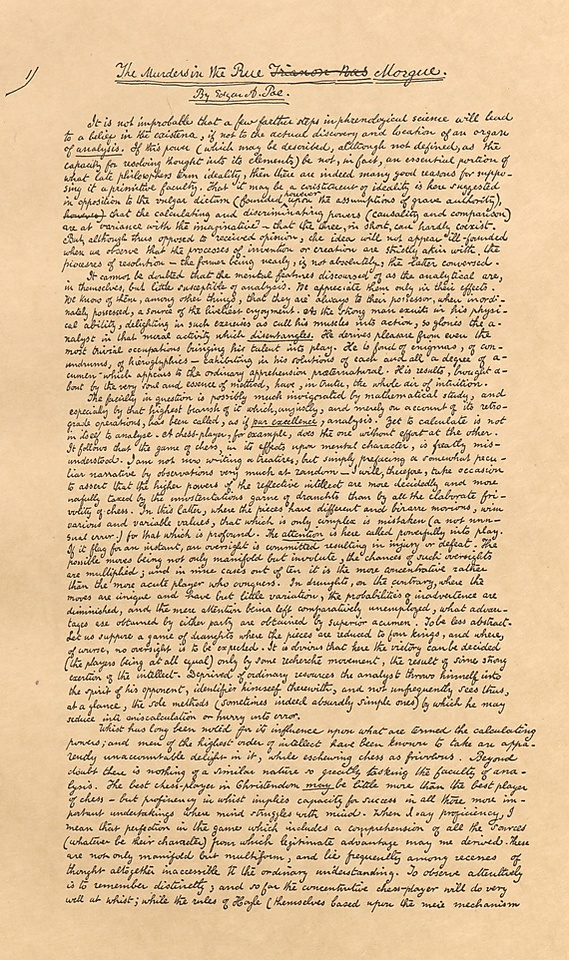 1)
The Murders in the Rue Trianon Bas Morgue.
By Edgar A. Poe.
It is not improbable that a few farther steps in phrenological science will lead
to a belief in the existence, if not to the actual discovery and location of an organ
of analysis. If this power (which may be described, although not defined, as the
capacity for resolving thought into its elements) be not, in fact, an essential portion of
what late philosophers term ideality, then there are indeed many good reasons for suppo-
sing it a primitive faculty. That it may be a constituent of ideality is here suggested
in opposition to the vulgar dictum (founded however upon the assumptions of grave authority),
however) that the calculating and discriminating powers (causality and comparison)
are at variance with the imaginative — that the three, in short, can hardly coexist.
But, although thus opposed to received opinion, the idea will not appear ill-founded
when we observe that the processes of invention or creation are strictly akin with the
processes of resolution — the former being nearly, if not absolutely, the latter conversed.
It cannot be doubted that the mental features discoursed of as the analytical are,
in themselves, but little susceptible of analysis. We appreciate them only in their effects.
We know of them, among other things, that they are always to their possessor, when inordi-
nately possessed, a source of the liveliest enjoyment. As the strong man exults in his physi-
cal ability, delighting in such exercises as call his muscles into action, so glories the a-
nalyst in that moral activity which disentangles. He derives pleasure from even the
most trivial occupations bringing his talent into play. He is fond of enigmas, of con-
undrums, of hieroglyphics — exhibiting in his solutions of each and all a degree of a-
cumen which appears to the ordinary apprehension preternatural. His results, brought a-
bout by the very soul and essence of method, have, in truth, the whole air of intuition.
The faculty in question is possibly much invigorated by mathematical study, and
especially by that highest branch of it which, unjustly, and merely on account of its retro-
grade operations, has been called, as if par excellence, analysis. Yet to calculate is not
in itself to analyse. A chess-player, for example, does the one without effort at the other.
It follows that the game of chess, in its effects upon mental character, is greatly mis-
understood. I am not now writing a treatise, but simply prefacing a somewhat pecu-
liar narrative by observations very much at random — I will, therefore, take occasion
to assert that the higher powers of the reflective intellect are more decidedly and more
usefully taxed by the unostentatious game of draughts than by all the elaborate fri-
volity of chess. In this latter, where the pieces have different and bizarre motions, with
various and variable values, that which is only complex is mistaken (a not unu-
sual error) for that which is profound. The attention is here called powerfully into play.
If it flag for an instant, an oversight is committed resulting in injury or defeat. The
possible moves being not only manifold but involute, the chances of such oversights
are multiplied; and in nine cases out of ten it is the more concentrative rather
than the more acute player who conquers. In draughts, on the contrary, where the
moves are unique and have but little variation, the probabilities of inadvertence are
diminished, and the mere attention being left comparatively unemployed, what advan-
tages are obtained by either party are obtained by superior acumen. To be less abstract—
Let us suppose a game of draughts where the pieces are reduced to four kings, and where,
of course, no oversight is to be expected. It is obvious that here the victory can be decided
(the players being at all equal) only by some recherché movement, the result of some strong
exertion of the intellect. Deprived of ordinary resources the analyst throws himself into
the spirit of his opponent, identifies himself therewith, and not unfrequently sees thus,
at a glance, the sole methods (sometimes indeed absurdly simple ones) by which he may
seduce into miscalculation or hurry into error.
Whist has long been noted for its influence upon what are termed the calculating
powers; and men of the highest order of intellect have been known to take an appa-
rently unaccountable delight in it, while eschewing chess as frivolous. Beyond
doubt there is nothing of a similar nature so greatly tasking the faculty of ana-
lysis. The best chess-player in Christendom may be little more than the best player
of chess — but proficiency in whist implies capacity for success in all those more im-
portant undertakings where mind struggles with mind. When I say proficiency, I
mean that perfection in the game which includes a comprehension of all the sources
(whatever be their character) from which legitimate advantage may be derived. These
are not only manifold but multiform, and lie frequently among recesses of
thought altogether inaccessible to the ordinary understanding. To observe attentively
is to remember distinctly; and so far the concentrative chess-player will do very
well at whist; while the rules of Hoyle (themselves based upon the mere mechanism